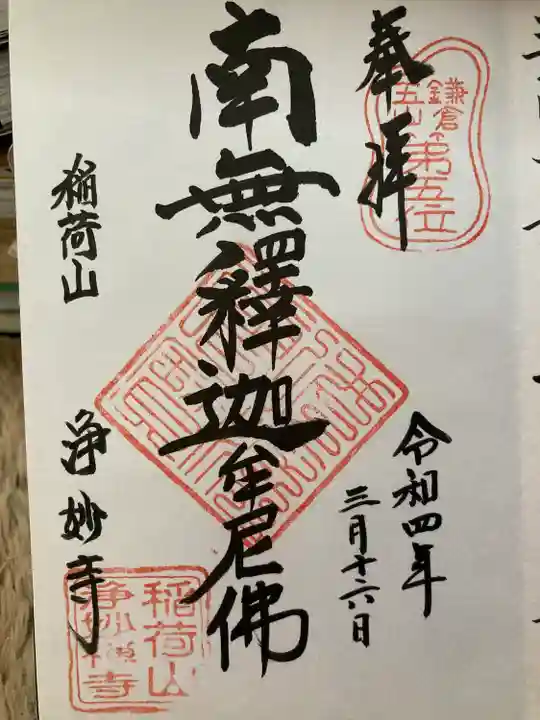 奉拝
鎌倉
五山
第五位
令和四年
三月十六日
南無釋迦牟尼佛
稲荷山
浄妙寺
稲荷山
浄妙禅寺